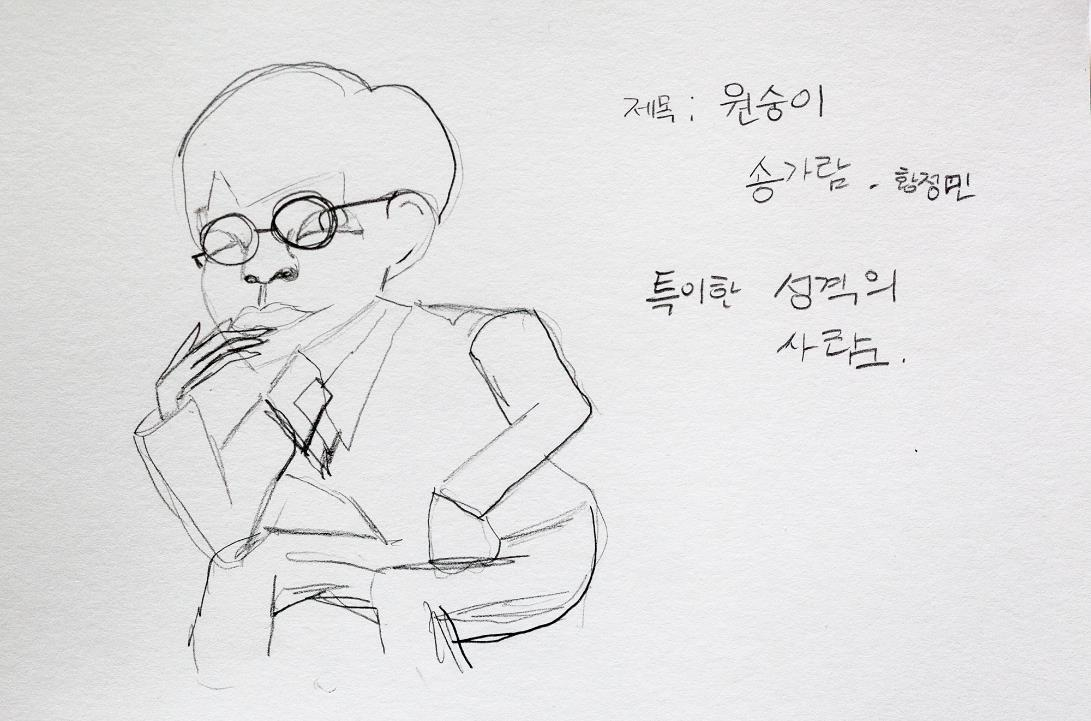 제목; 원숭이
송가람. 황정민
특이한 성격의
사람.